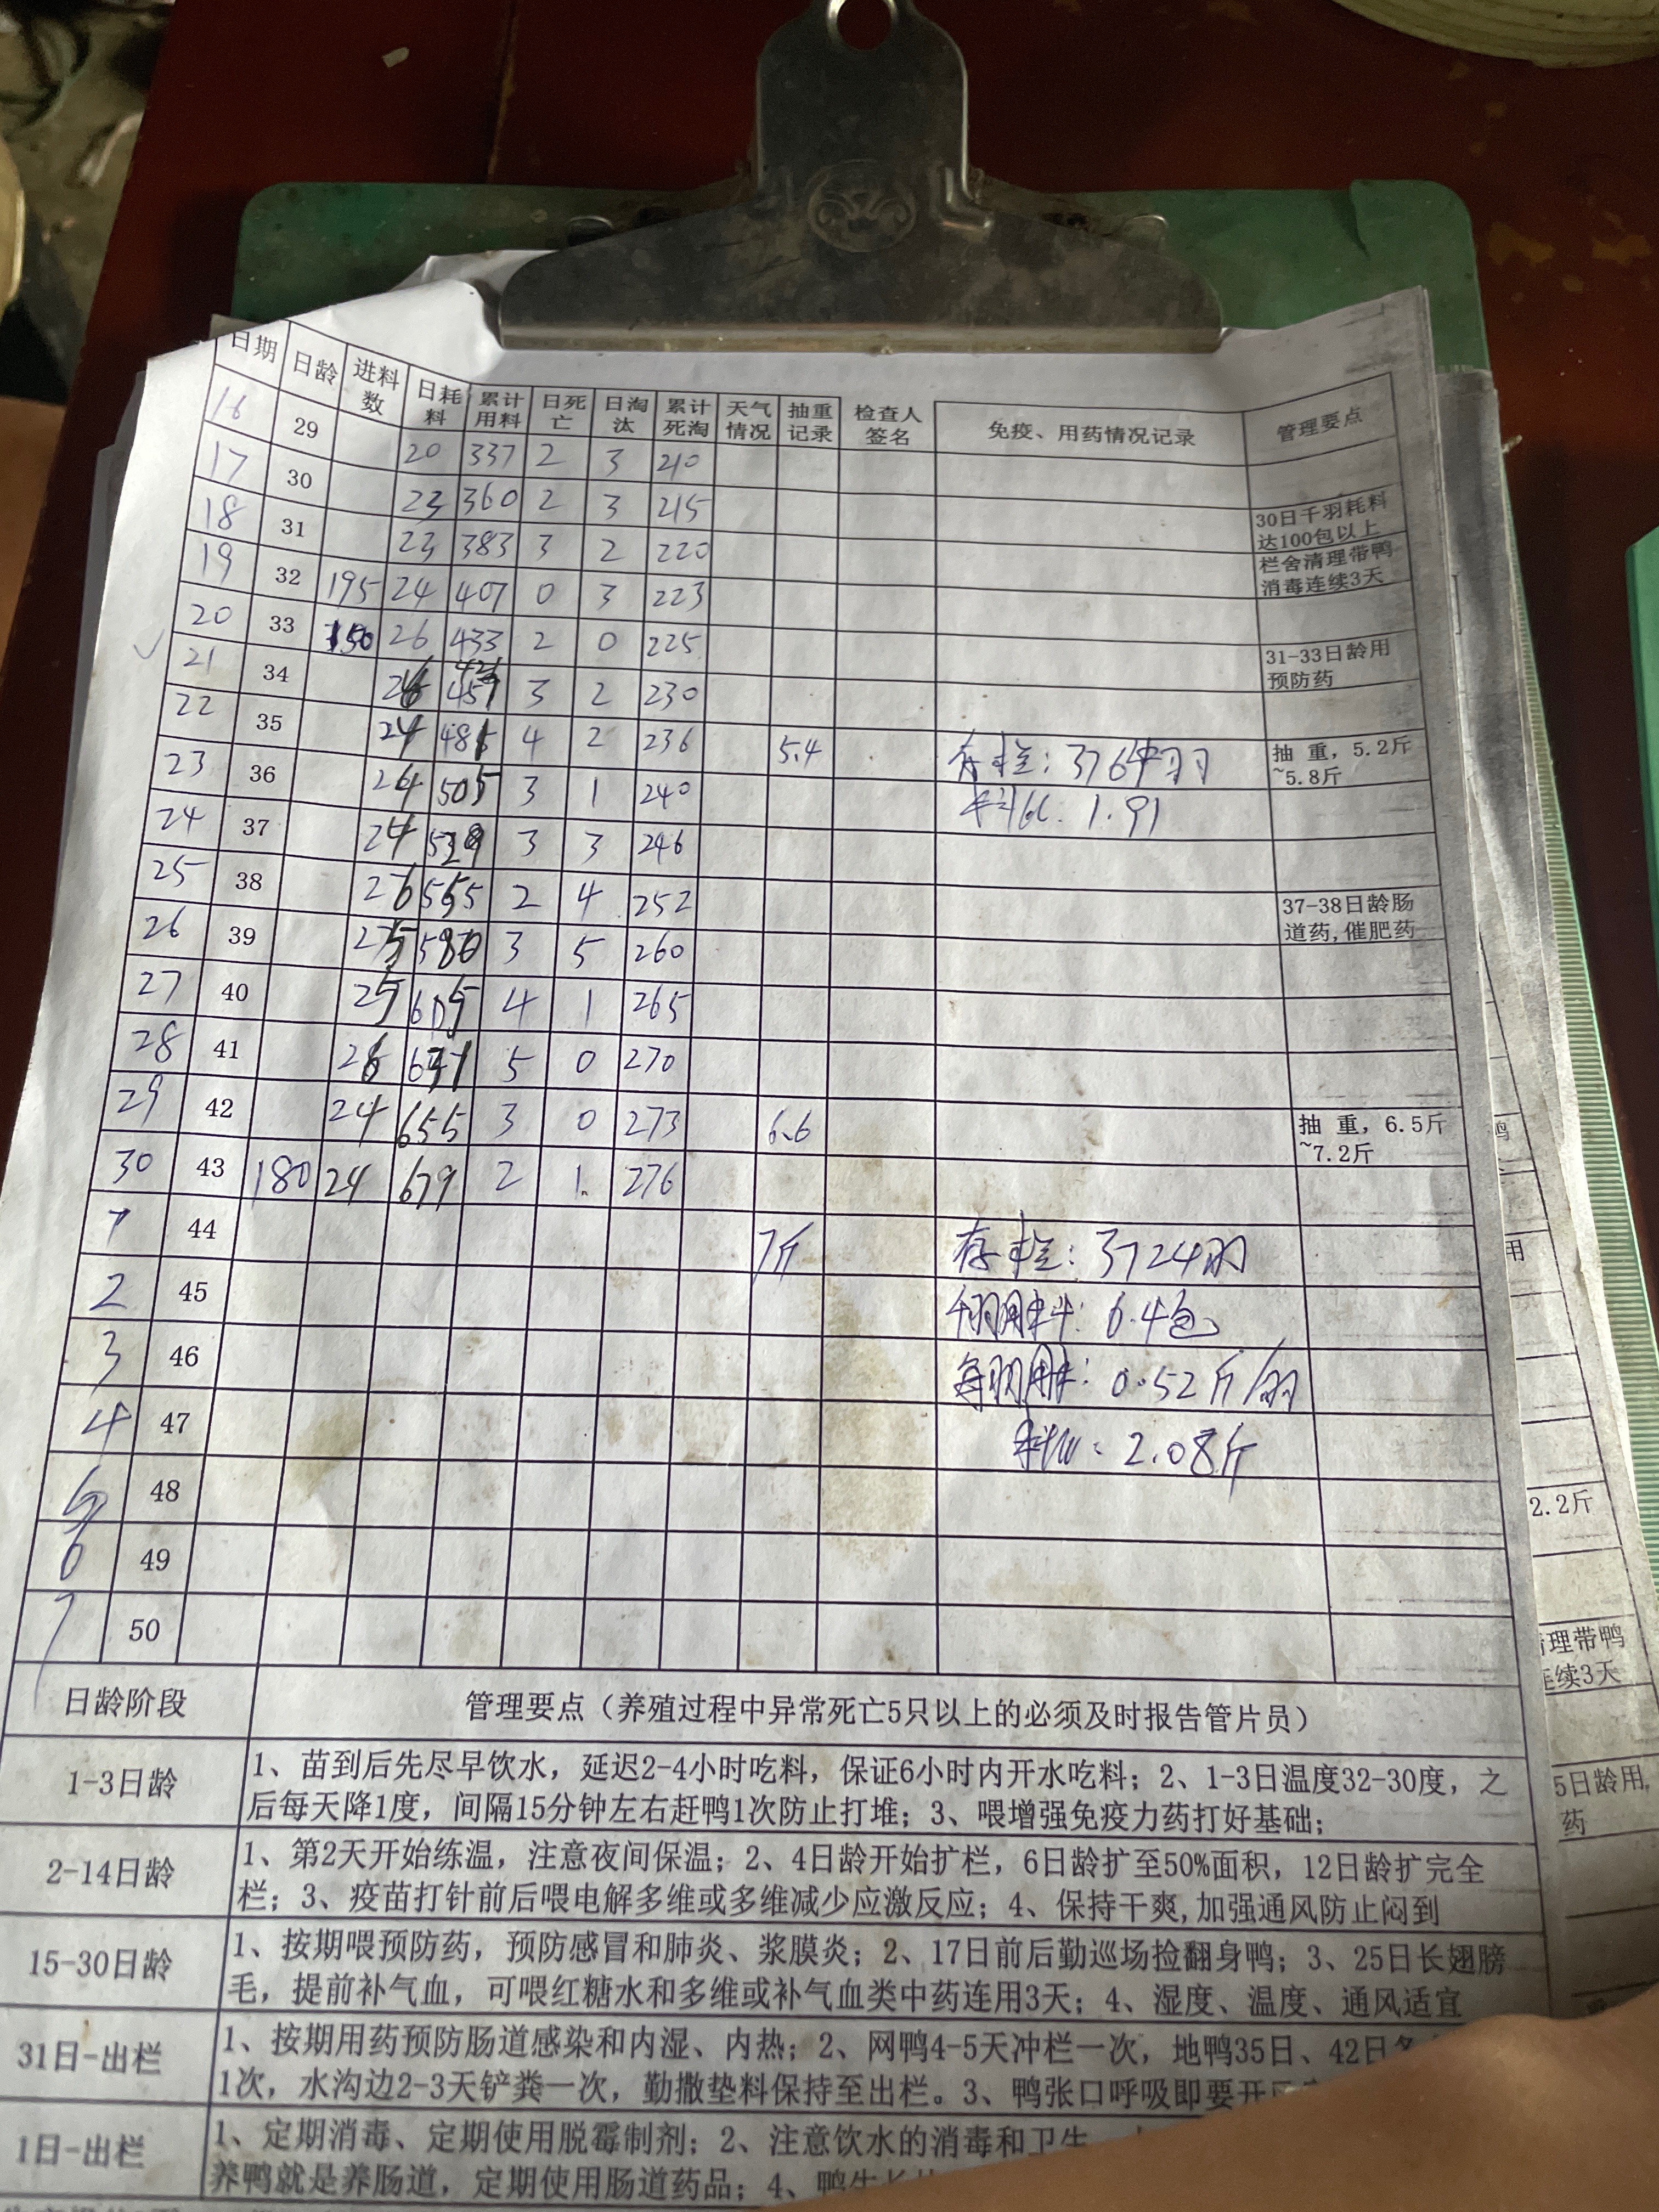 日期 日龄 进料数 日耗料 累计用料 日死亡 日淘汰 累计死淘 天气情况 抽重记录 检查人签名 免疫、用药情况记录 管理要点
16 29 20 337 2 3 210
17 30 23 360 2 3 215 30日千羽耗料达100包以上
18 31 23 383 3 2 220 栏舍清理带鸭消毒连续3天
19 32 195 24 407 0 3 223
20 33 150 26 433 2 0 225 31-33日龄用预防药
21 34 3 2 230
22 35 24 481 4 2 236 5.4 存栏: 3764羽 抽 重，5.2斤~5.8斤
23 36 24 505 3 1 240 料比: 1.91
24 37 24 529 3 3 246
25 38 26 555 2 4 252 37-38日龄肠道药,催肥药
26 39 25 580 3 5 260
27 40 25 605 4 1 265
28 41 26 631 5 0 270
29 42 24 655 3 0 273 6.6 抽 重，6.5斤~7.2斤
30 43 180 24 679 2 1 276
1 44 7斤 存栏: 3724羽
2 45 千羽用料: 6.4包
3 46 每羽用料: 0.52斤/羽
4 47 料比: 2.08斤
5 48
6 49
7 50
日龄阶段 管理要点（养殖过程中异常死亡5只以上的必须及时报告管片员）
1-3日龄 1、苗到后先尽早饮水，延迟2-4小时吃料，保证6小时内开水吃料；2、1-3日温度32-30度，之
后每天降1度，间隔15分钟左右赶鸭1次防止打堆；3、喂增强免疫力药打好基础；
2-14日龄 1、第2天开始练温，注意夜间保温；2、4日龄开始扩栏，6日龄扩至50%面积，12日龄扩完全
栏；3、疫苗打针前后喂电解多维或多维减少应激反应；4、保持干爽,加强通风防止闷到
15-30日龄 1、按期喂预防药，预防感冒和肺炎、浆膜炎；2、17日前后勤巡场捡翻身鸭；3、25日长翅膀
毛，提前补气血，可喂红糖水和多维或补气血类中药连用3天；4、湿度、温度、通风适宜
31日-出栏 1、按期用药预防肠道感染和内湿、内热；2、网鸭4-5天冲栏一次，地鸭35日、42日
1次，水沟边2-3天铲粪一次，勤撒垫料保持至出栏。3、鸭张口呼吸即要开
1日-出栏 1、定期消毒、定期使用脱霉制剂；2、注意饮水的消毒和卫生
养鸭就是养肠道，定期使用肠道药品；4、鸭
鸭
用
2.2斤
理带鸭
连续3天
5日龄用,
药